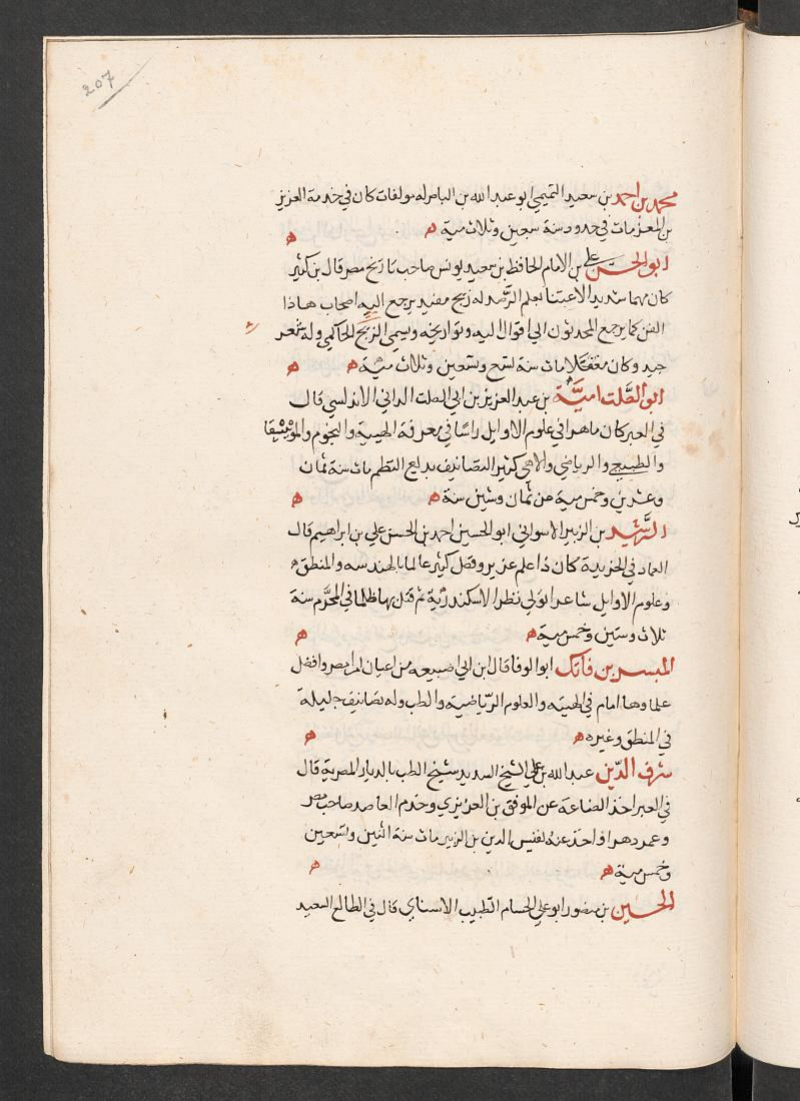 207
محمد بن احمد بن سعيد التميمي ابو عبد الله من الباصر له مولفات كان في خدمة العزيز
بن المعز مات في حدود سنة سبعين وثلاث مية ه ه
ابو الحسن علي بن الامام الحافظ بن سعيد يونس صاحب تاريخ مصر قال بن كثير
كان مهما شديد الاعتنا بعلم الرصد له زيج مفيد يرجع اليه اصحاب هاذا
الفن كما يرجع المحدثون الي اقوال اليه وتواريخه وسمي الزيج الحاكمي وله شعر
جيد وكان مغفلا مات سنة تسع وتسعين وثلاث مية ه ه
ابو الصلت امية بن عبد العزيز بن ابي الصلت الداني الاندلسي قال
في العبر كان ماهرا في علوم الاوايل راسا في معرفة الهيية والنجوم والموسيقا
والطبيعي والرياضي والالاهي كثير التصانيف بديع النظم مات سنة ثمان
وعشرين وخمس مية عن ثمان وستين سنة ه ه
الرشيد بن الزبير الاسواني ابو الحسين احمد بن الحسن علي بن ابراهيم قال
العماد في الخريدة كان ذا علم غزير وفضل كثير عالما بالهندسه والمنطق ه
وعلوم الاوايل شاعرا ولي نظر الاسكندرية ثم قتل بها ظلما في المحرم سنة
ثلاث وستين وخمس مية ه ه
المبسر بن فاتك ابو الوفا قال ابن ابي اصيبعه من اعيان امرا مصر وافضل
علماوها امام في الهييه والعلوم الرياضيه والطب وله تصانيف جليلة
في المنطق وغيره ه ه
شرف الدين عبد الله بن علي الشيخ السديد شيخ الطب بالديار المصرية قال
في العبر اخذ الصناعة عن الموفق بن العزيزي وخدم العاضد صاحب مصر
وعمر دهرا واخذ عنه نفيس الدين بن الزبير مات سنة اثنين وتسعين
وخمس مية ه ه
الحسين بن منصور ابو علي الحسام الطبيب الاسناي قال في الطالع السعيد